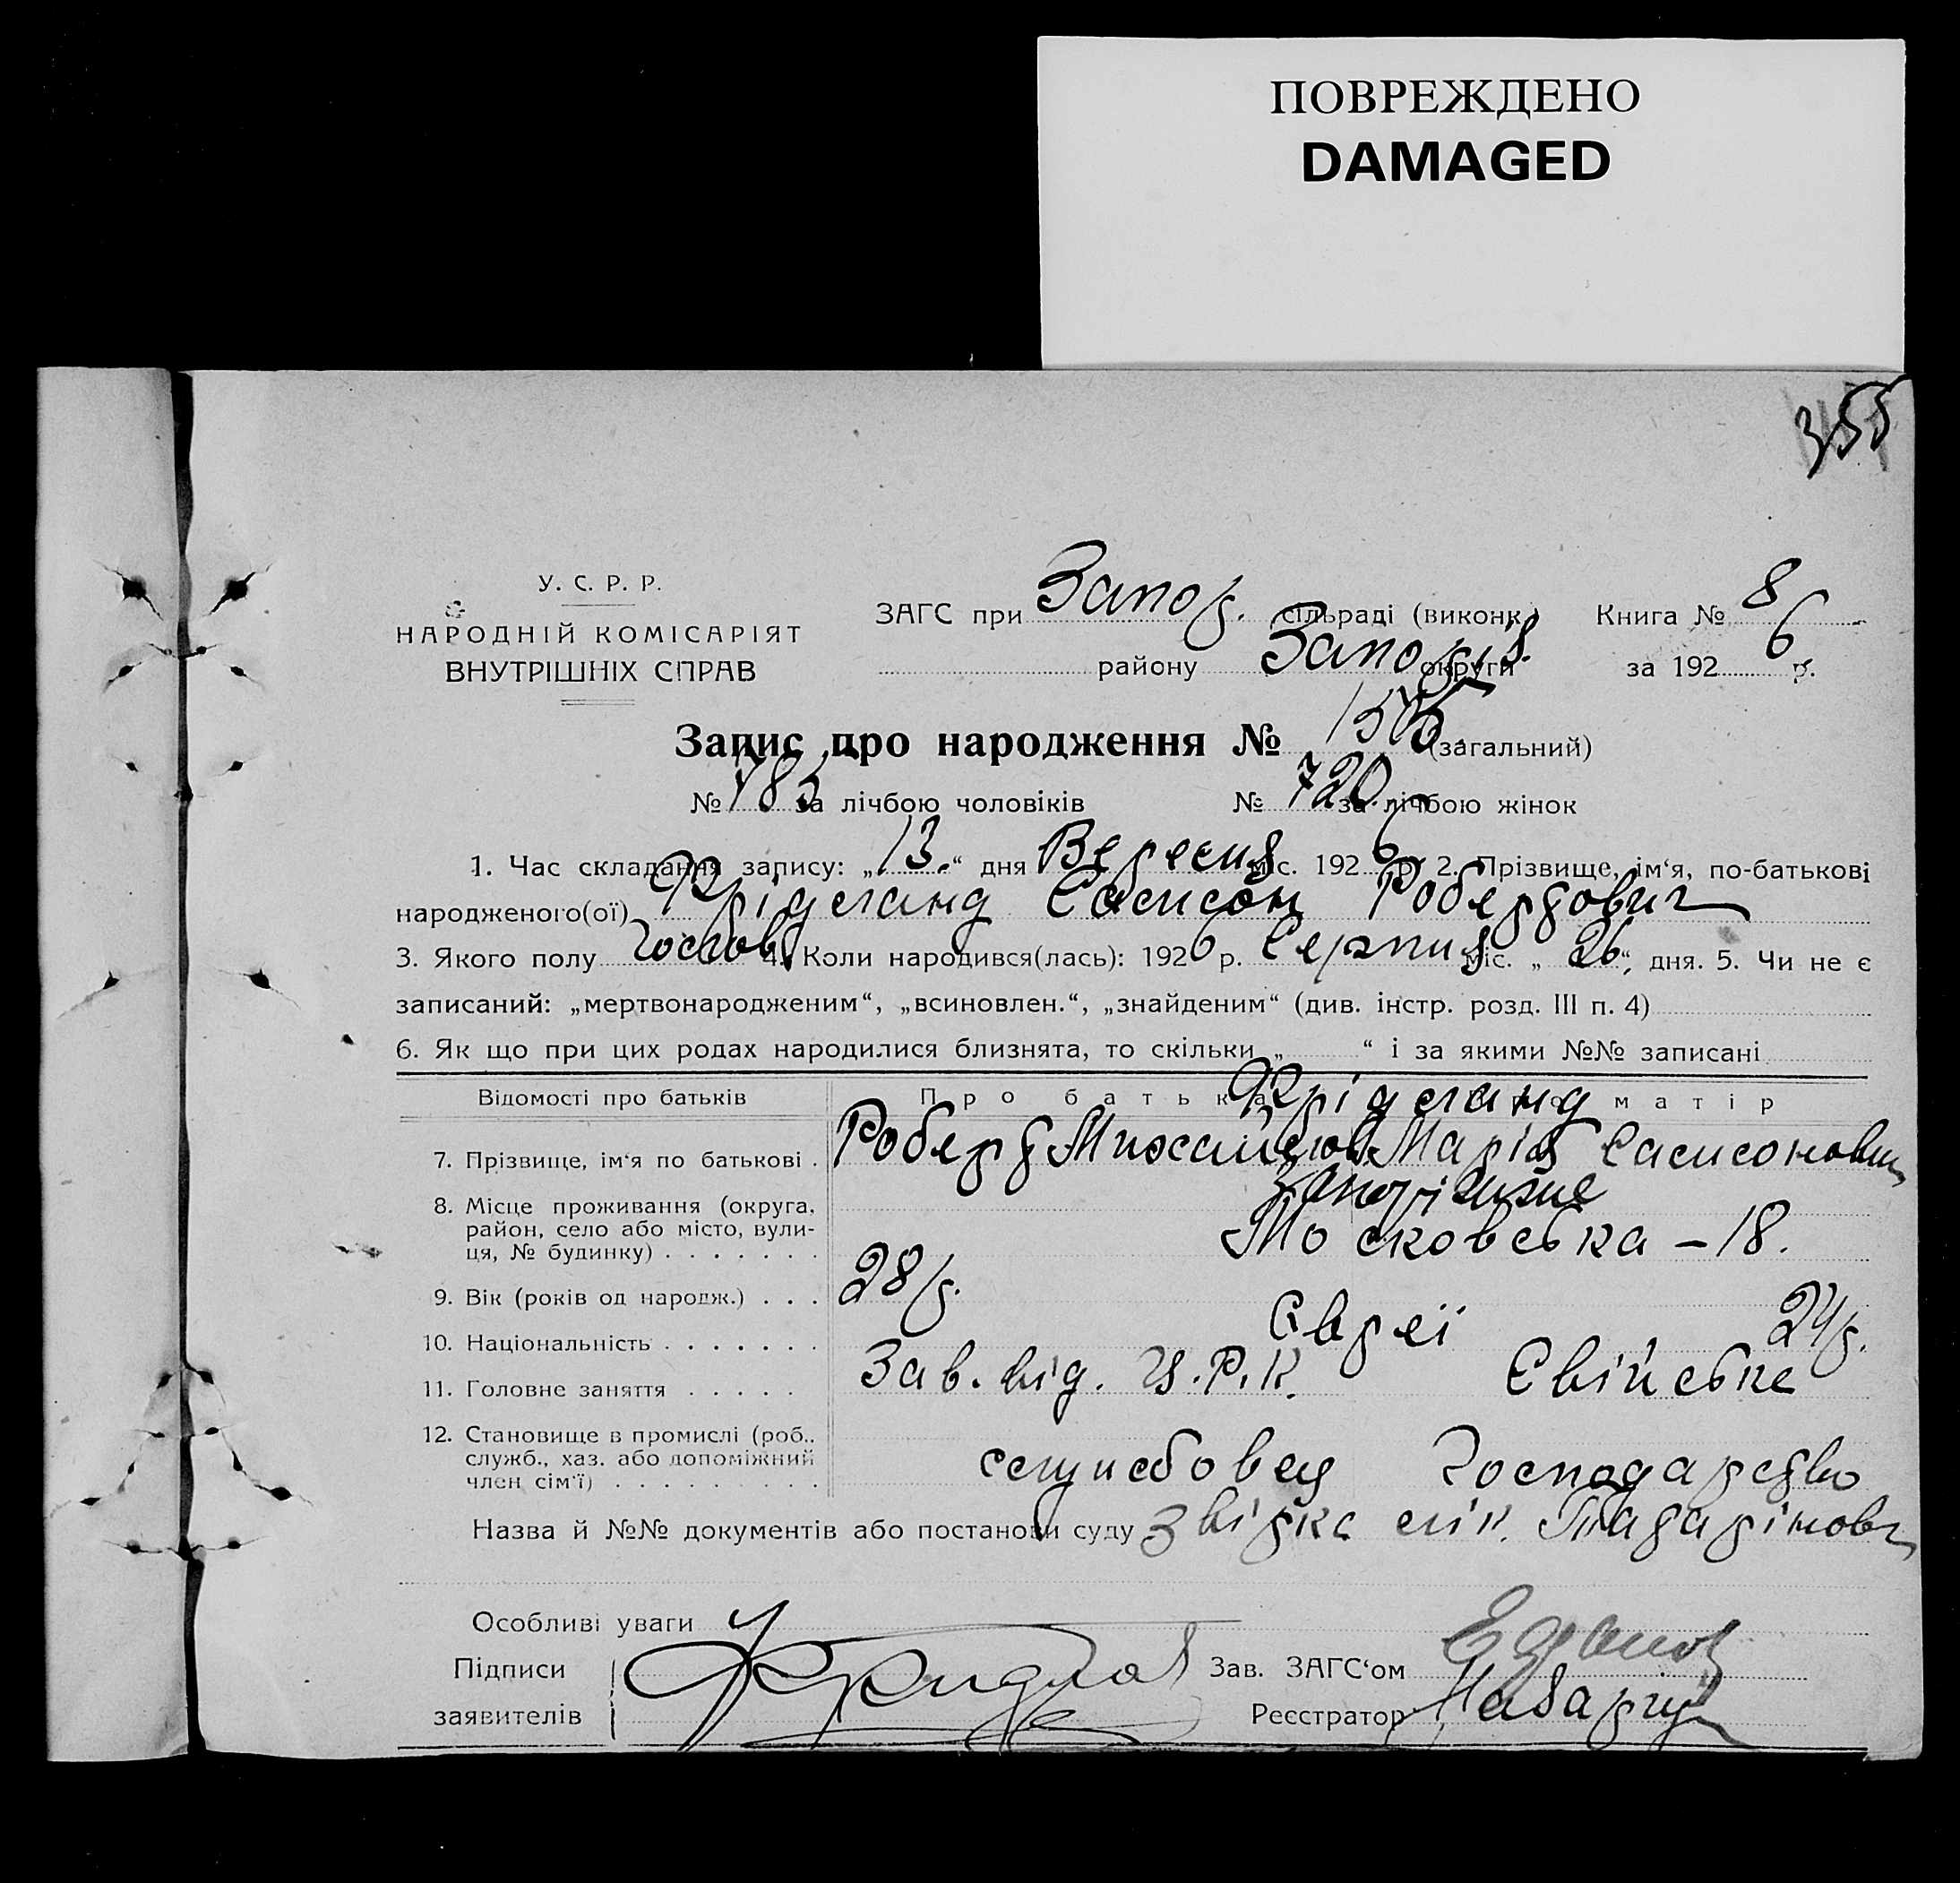 ПОВРЕЖДЕНО
DAMAGED
355
У. С. Р. Р.
НАРОДНІЙ КОМІСАРІЯТ
ВНУТРІШНІХ СПРАВ
ЗАГС при Запор. сільраді (виконк.) Книга № 8
району Запоріз. округи за 1926 р.
Запис про народження № 1505 (загальний)
№ 785 за лічбою чоловіків № 720 за лічбою жінок
1. Час складання запису: „13.“ дня Вересня міс. 1926 р. 2. Прізвище, ім‘я, по-батькові
народженого(ої) Фрідланд Самсон Робертович
3. Якого полу чолов 4. Коли народився(лась): 1926 р. Серпня міс. „26“, дня. 5. Чи не є
записаний: „мертвонародженим“, „всиновлен.“, „знайденим“ (див. інстр. розд. III п. 4)
6. Як що при цих родах народилися близнята, то скільки „ “ і за якими №№ записані
Відомості про батьків Про батька Фрідланд матір
7. Прізвище, ім‘я по батькові . Роберт Михайлов Марія Самсоновн
8. Місце проживання (округа, Запоріжже
район, село або місто, вули- Московська – 18.
ця, № будинку) . . . . . . .
9. Вік (років од народж.) . . . 28 р. 24 р.
10. Національність . . . . . . . Євреї
11. Головне заняття . . . . . Зав. від. Ц.Р.К. Свійське
12. Становище в промислі (роб.,
служб., хаз. або допоміжний службовец господарство
член сім‘ї) . . . . . . . . .
Назва й №№ документів або постанови суду Звірка лік.
Особливі уваги
Підписи Зав. ЗАГС‘ом
заявителів Реєстратор